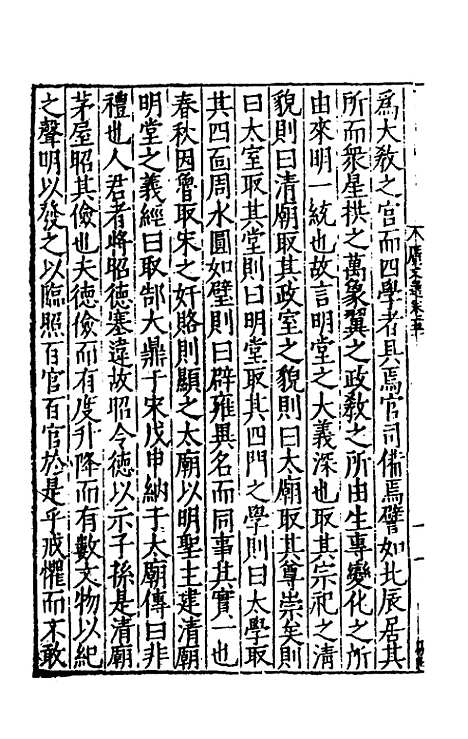 爲大教之宫而四學者具焉官司備焉譬如北辰居其
所而衆星拱之萬象翼之政教之所由生專變化之所
由來明一統也故言明堂之大義深也取其宗祀之清
貌則曰清廟取其政室之貌則曰太廟取其尊崇矣則
曰太室取其堂則曰明堂取其四門之學則曰太學取
其四面周水圓如璧則曰辟雍異名而同事其實一也
春秋因魯取宋之奸賂則顯之太廟以明聖主建清廟
明堂之義經曰取郜大鼎于宋戊申納于太廟傳曰非
禮也人君者將昭德塞違故昭令德以示子孫是清廟
茅屋昭其儉也夫德儉而有度升降而有數文物以紀
之聲明以發之以臨照百官百官於是乎戒懼而不敢